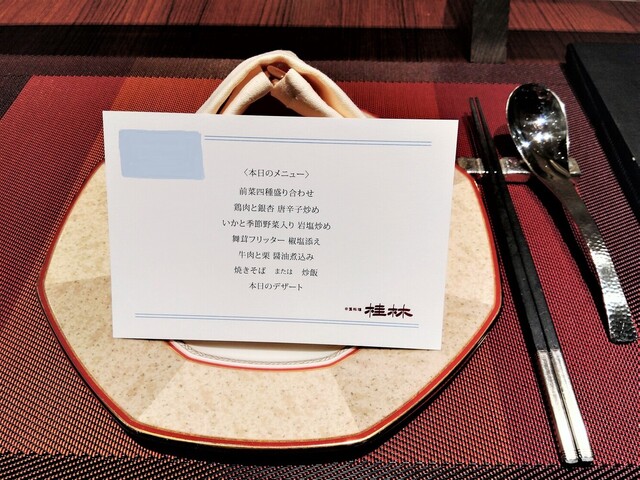 〈本日のメニュー〉
前菜四種盛り合わせ
鶏肉と銀杏 唐辛子炒め
いかと季節野菜入り 岩塩炒め
舞茸フリッター 椒塩添え
牛肉と栗 醤油煮込み
焼きそば または 炒飯
本日のデザート
中国料理 桂林